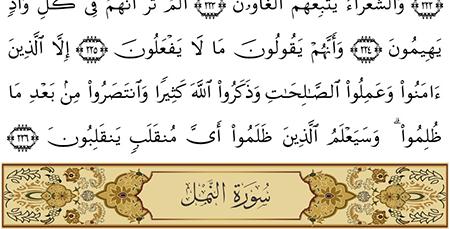 ﴿٢٢٣﴾ وَٱلشُّعَرَآءُ يَتَّبِعُهُمُ ٱلْغَاوُۥنَ ﴿٢٢٤﴾ أَلَمْ تَرَ أَنَّهُمْ فِى كُلِّ وَادٍ
يَهِيمُونَ ﴿٢٢٥﴾ وَأَنَّهُمْ يَقُولُونَ مَا لَا يَفْعَلُونَ ﴿٢٢٦﴾ إِلَّا ٱلَّذِينَ
ءَامَنُوا۟ وَعَمِلُوا۟ ٱلصَّـٰلِحَـٰتِ وَذَكَرُوا۟ ٱللَّهَ كَثِيرًا وَٱنتَصَرُوا۟ مِنۢ بَعْدِ مَا
ظُلِمُوا۟ ۗ وَسَيَعْلَمُ ٱلَّذِينَ ظَلَمُوٓا۟ أَىَّ مُنقَلَبٍ يَنقَلِبُونَ ﴿٢٢٧﴾
سُورَةُ النَّمْلِ